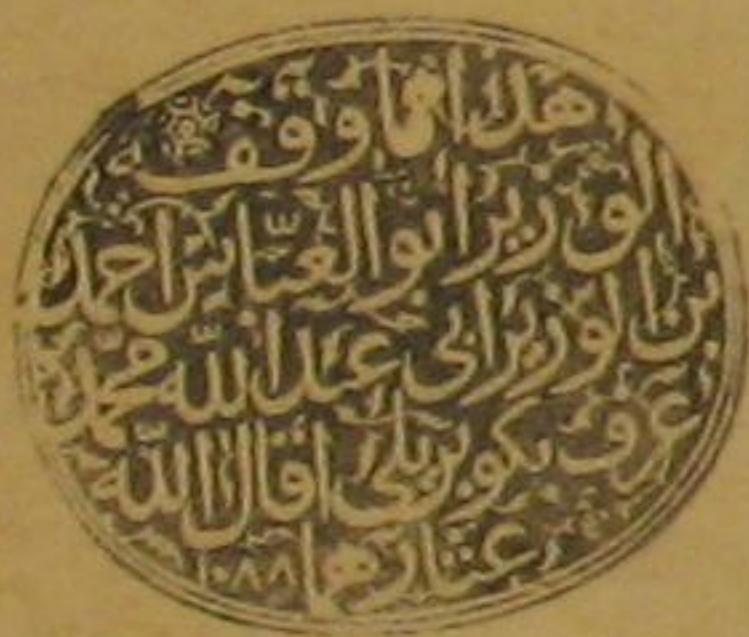 هذا مما وقف
الوزير أبو العباس أحمد
بن الوزير أبي عبد الله محمد
عرف بكوبريلي أقال الله
عثارهما ١٠٨٨